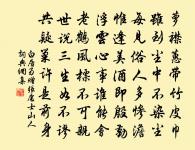 蘿襟蕙帶竹皮巾
雖到塵中不染塵
每見俗人多慘澹
惟逢美酒即殷勤
浮雲心事誰能會
老鶴風標不可親
世說三生如不謬
共疑巢許是前身
白居易贈張處士山人
詞典網集